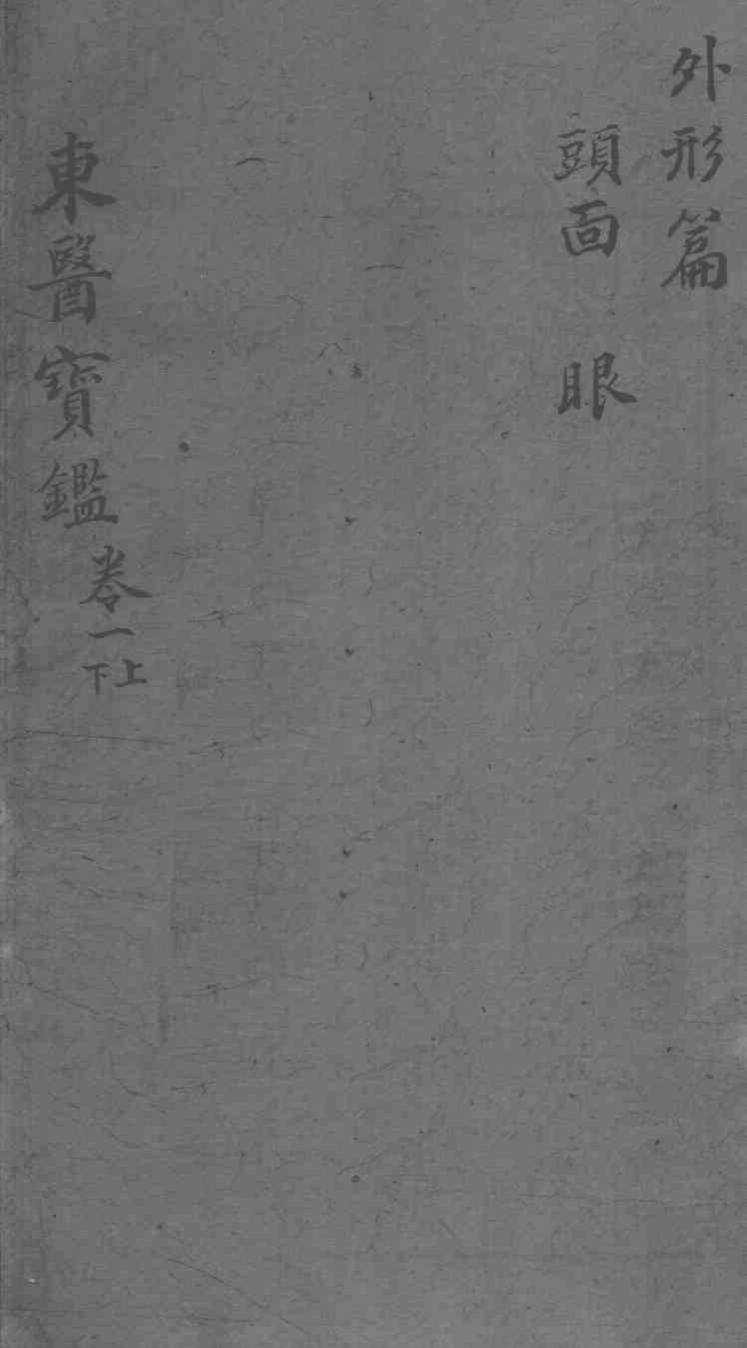 外形篇
頭面 眼
東醫寶鑑 卷一 上下